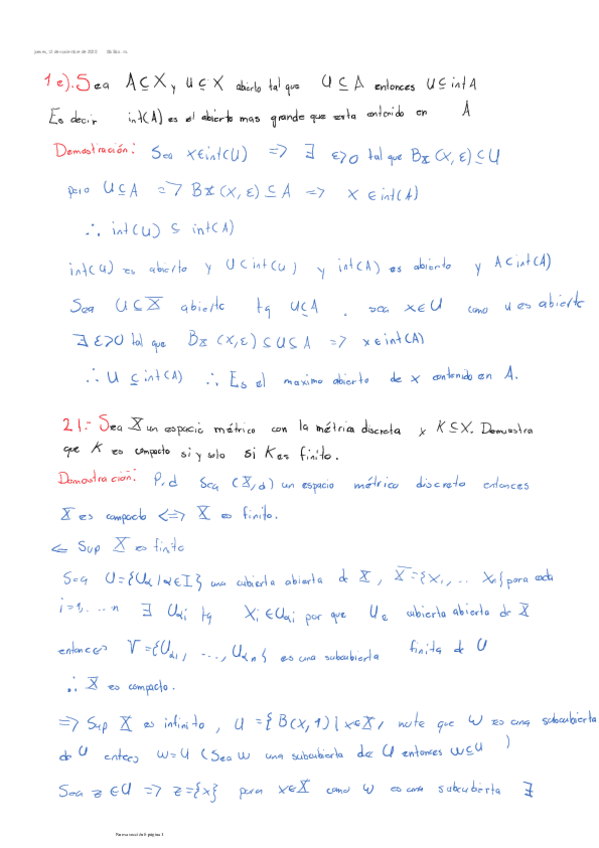 1e). Sea A ⊆ X y U ⊆ X abierto tal que U ⊆ A entonces U ⊆ int A
Es decir int(A) es el abierto mas grande que esta contenido en A
Demostración: Sea x ∈ int(U) => ∃ ε>0 tal que BX(x, ε) ⊆ U
pero U ⊆ A => BX(x, ε) ⊆ A => x ∈ int(A)
∴ int(U) ⊆ int(A)
int(U) es abierto y U ⊂ int(U) y int(A) es abierto y A ⊂ int(A)
Sea U ⊆ X abierto tq U ⊆ A . sea x ∈ U como U es abierto
∃ ε>0 tal que BX(x, ε) ⊆ U ⊆ A => x ∈ int(A)
∴ U ⊆ int(A) ∴ Es el maximo abierto de x contenido en A.
21.- Sea X un espacio métrico con la métrica discreta y K ⊆ X. Demuestra
que K es compacto si y solo si K es finito.
Demostración: P.d Sea (X, d) un espacio métrico discreto entonces
X es compacto <=> X es finito.
<= Sup X es finito
Sea U = {Uα | α ∈ I} una cubierta abierta de X, X = {x1, ... xn} para cada
i=1, ... n ∃ Uαi tq xi ∈ Uαi por que U es cubierta abierta de X
entonces V = {Uα1, ..., Uαn} es una subcubierta finita de U
∴ X es compacto.
=> Sup X es infinito, U = {B(x, 1) | x ∈ X, note que W es una subcubierta
de U entces W = U (Sea W una subcubierta de U entonces W ⊆ U )
Sea z ∈ U => z = {x} para x ∈ X como W es una subcubierta ∃